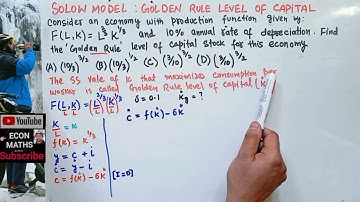 SOLOW MODEL : GOLDEN RULE LEVEL OF CAPITAL
Consider an economy with production function given by:
F(L,K) = L^{2/3} K^{1/3} and 10% annual rate of depreciation. Find
the 'Golden Rule' level of capital stock for this economy.
(A) (10/3)^{3/2} (B) (10/3)^{2/3} (C) (3/10)^{2/3} (D) (3/10)^{3/2}
The SS vale of K that maximizes consumption per
worker is called Golden Rule level of Capital (k
F(L,K) = L^{2/3} K^{1/3} δ = 0.1 Kg = ?
K/L = k
f(k) = k^{1/3}
y = c + i
c = y - i
c = f(k) - δk [I=D]
c = f(k) - δk
ECON
MATHS